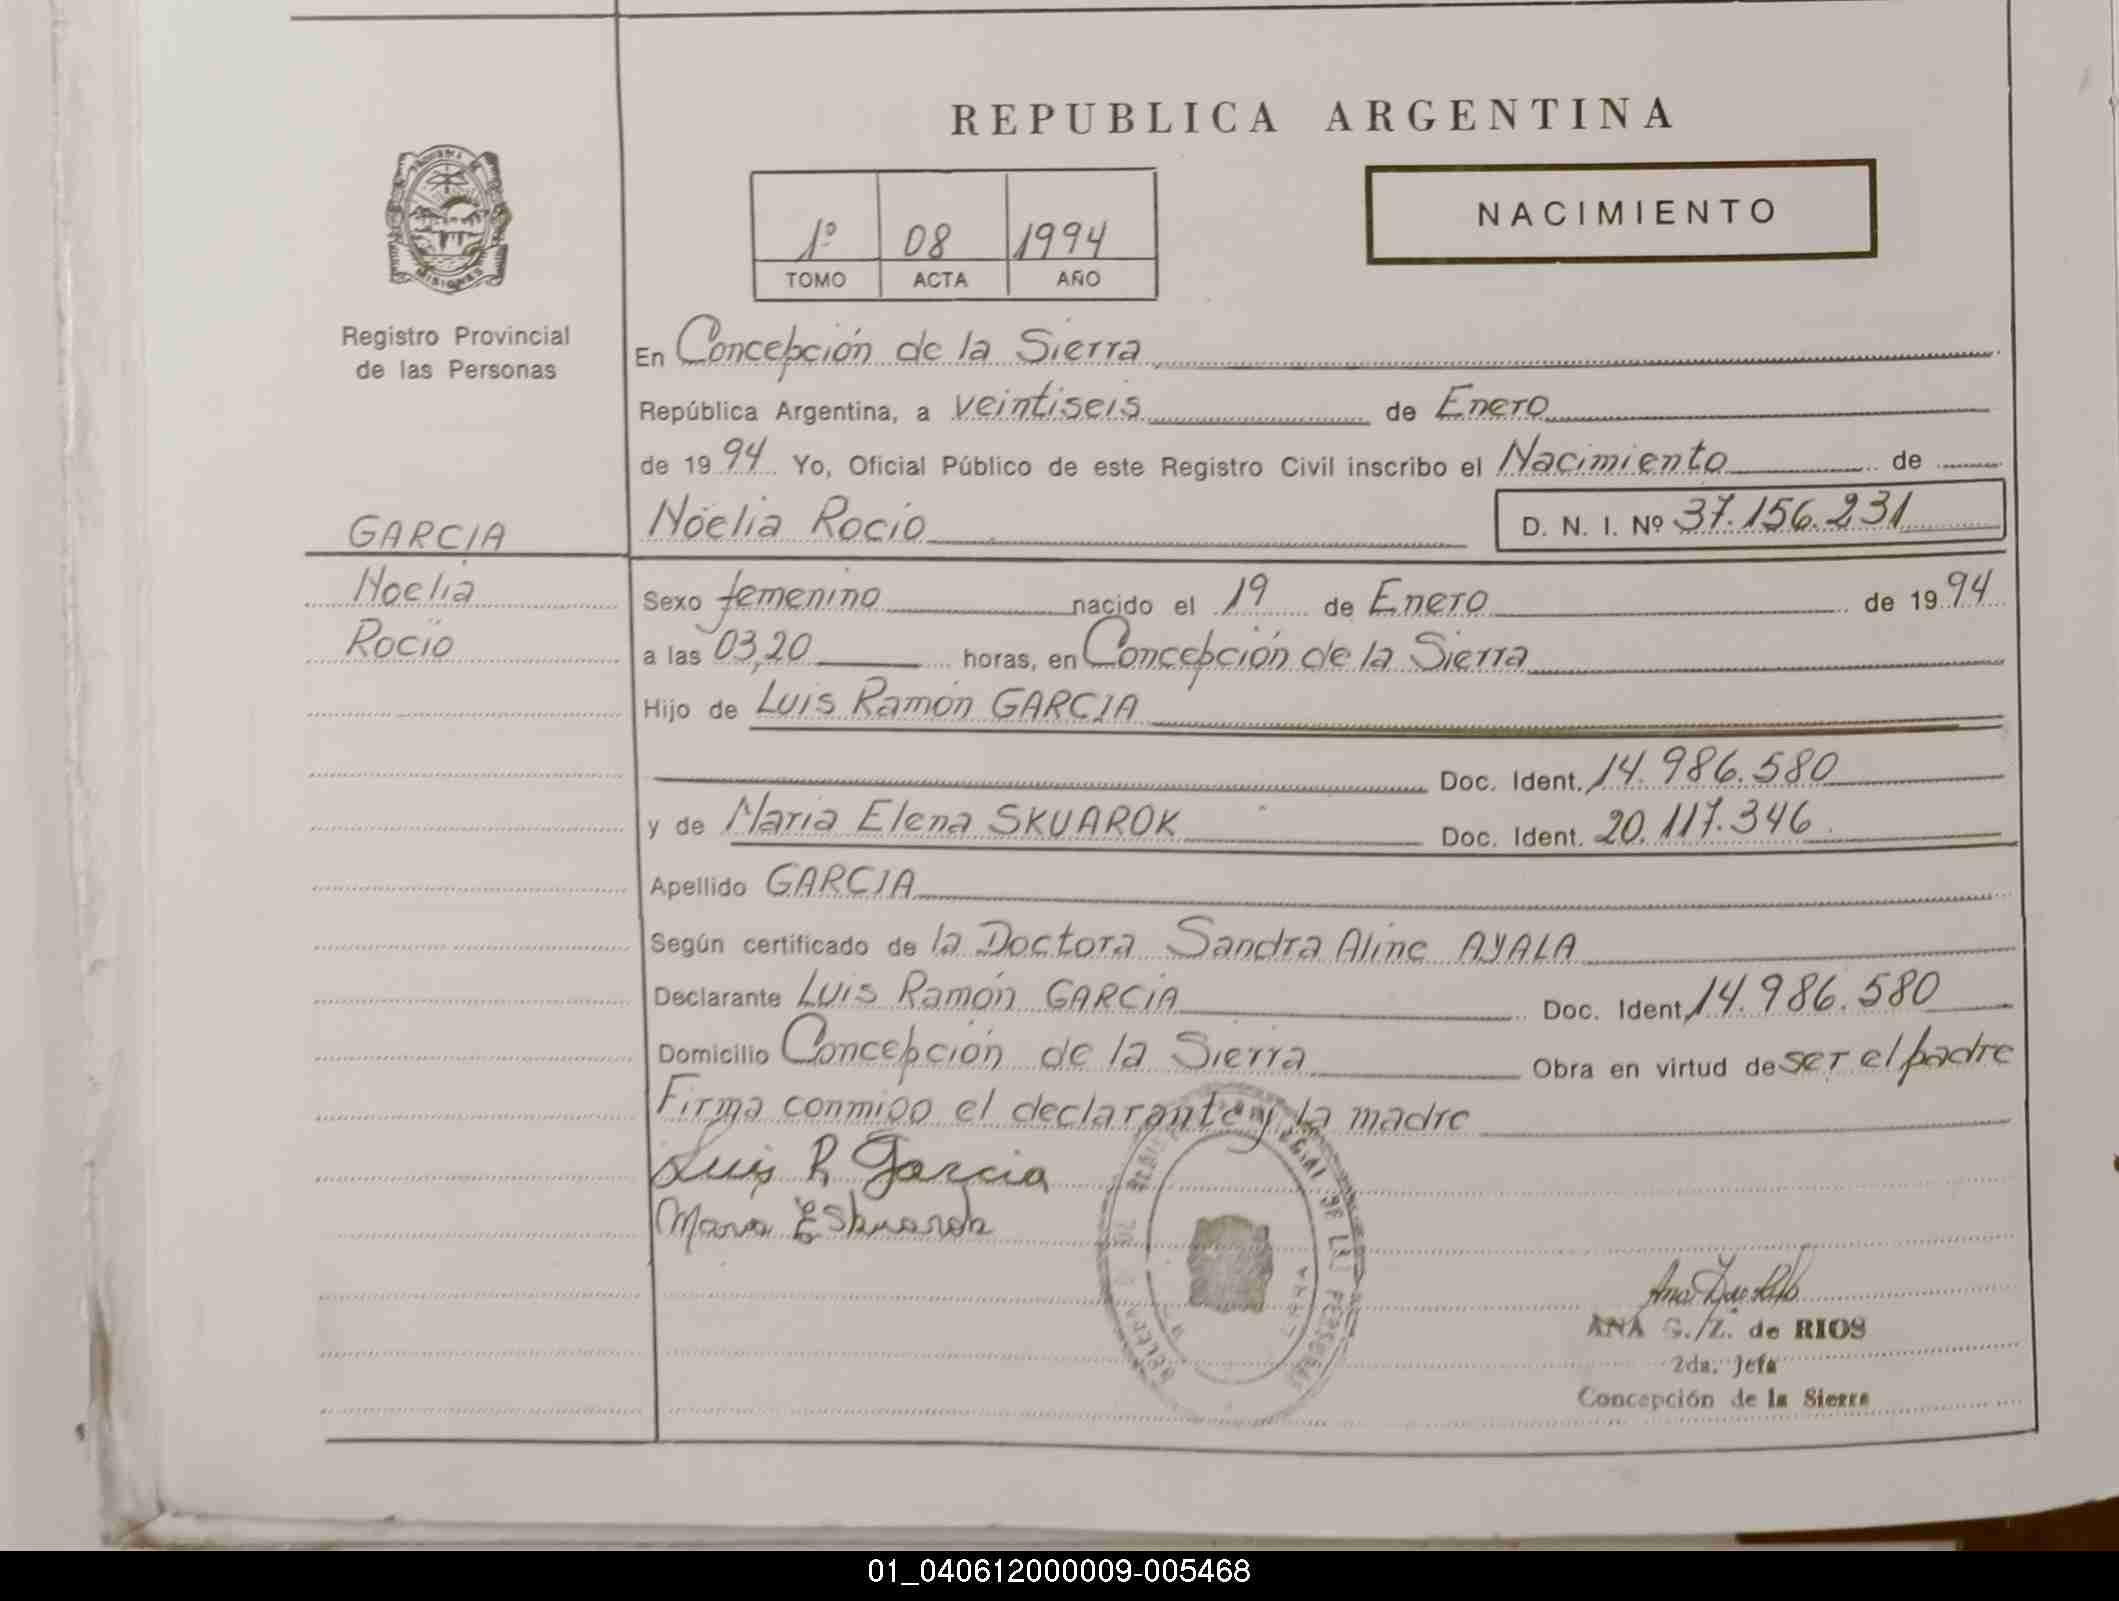 REPUBLICA ARGENTINA
NACIMIENTO
1º 08 1994
TOMO ACTA AÑO
MISIONES
Registro Provincial
de las Personas
En Concepción de la Sierra
República Argentina, a veintiseis de Enero
de 1994 Yo, Oficial Público de este Registro Civil inscribo el Nacimiento de
GARCIA
Noelia Rocío D. N. I. Nº 37.156.231
Noelia
Rocío
Sexo femenino nacido el 19 de Enero de 1994
a las 03,20 horas, en Concepción de la Sierra
Hijo de Luis Ramón GARCIA
Doc. Ident. 14.986.580
y de Maria Elena SKUAROK Doc. Ident. 20.117.346
Apellido GARCIA
Según certificado de la Doctora Sandra Aline AYALA
Declarante Luis Ramón GARCIA Doc. Ident. 14.986.580
Domicilio Concepción de la Sierra Obra en virtud de ser el padre
Firma conmigo el declarante y la madre
Luis R. Garcia
Maria E Skuarok
ANA G. Z. de RIOS
2da. Jefa
Concepción de la Sierra
01_040612000009-005468